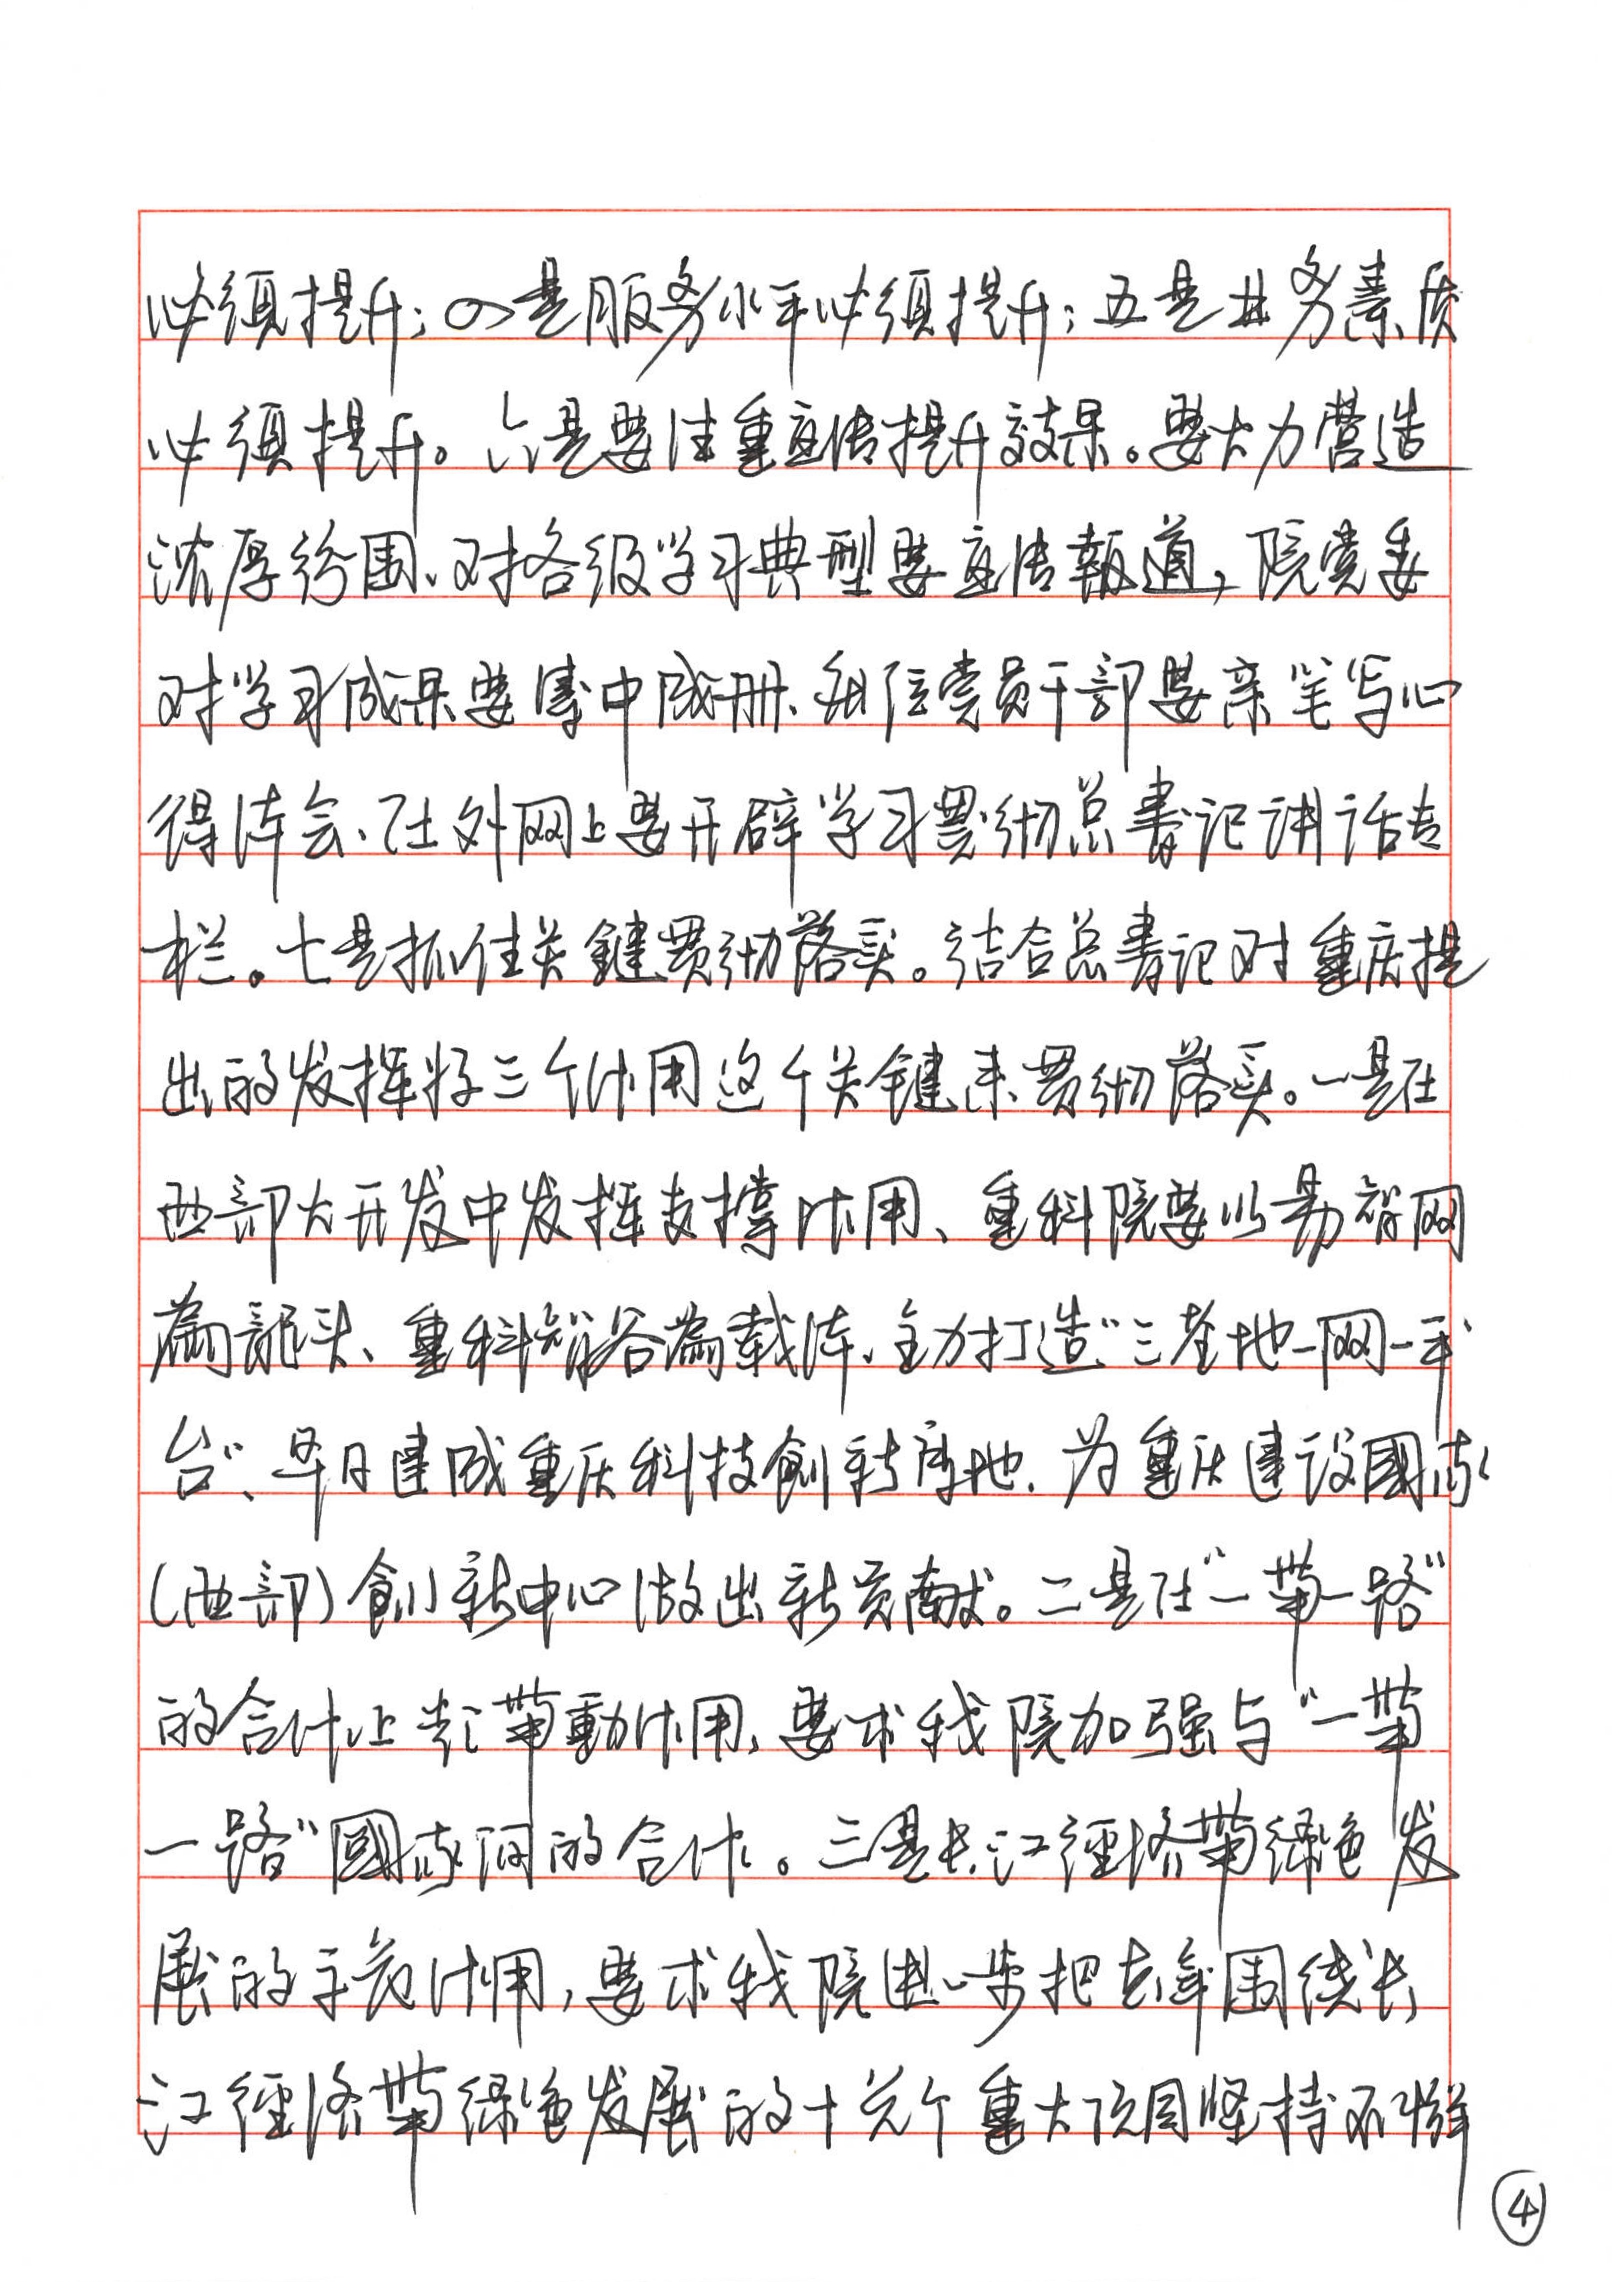 必须提升；四是服务水平必须提升；五是业务素质
必须提升。六是要注重宣传提升效果。要大力营造
浓厚氛围、对各级学习典型要宣传報道，院党委
对学习成果要集中成册、每位党员干部要亲笔写心
得体会、在外网上要开辟学习贯彻总書记讲话专
栏。七是抓住关鍵贯彻落实。结合总書记对重庆提
出的发挥好三个作用这个关鍵来贯彻落实。一是在
西部大开发中发挥支撑作用、重科院要以易智网
為龍头、重科智谷為载体、全力打造“三基地一网一平
台”、早日建成重庆科技創新高地、为重庆建设國家
（西部）創新中心做出新贡献。二是在“一带一路”
的合作上发挥带動作用、要求我院加强与“一带
一路”國家间的合作。三是长江經济带绿色发
展的示范作用，要求我院进一步把去年围绕长
江經济带绿色发展的十六个重大项目坚持不懈
④